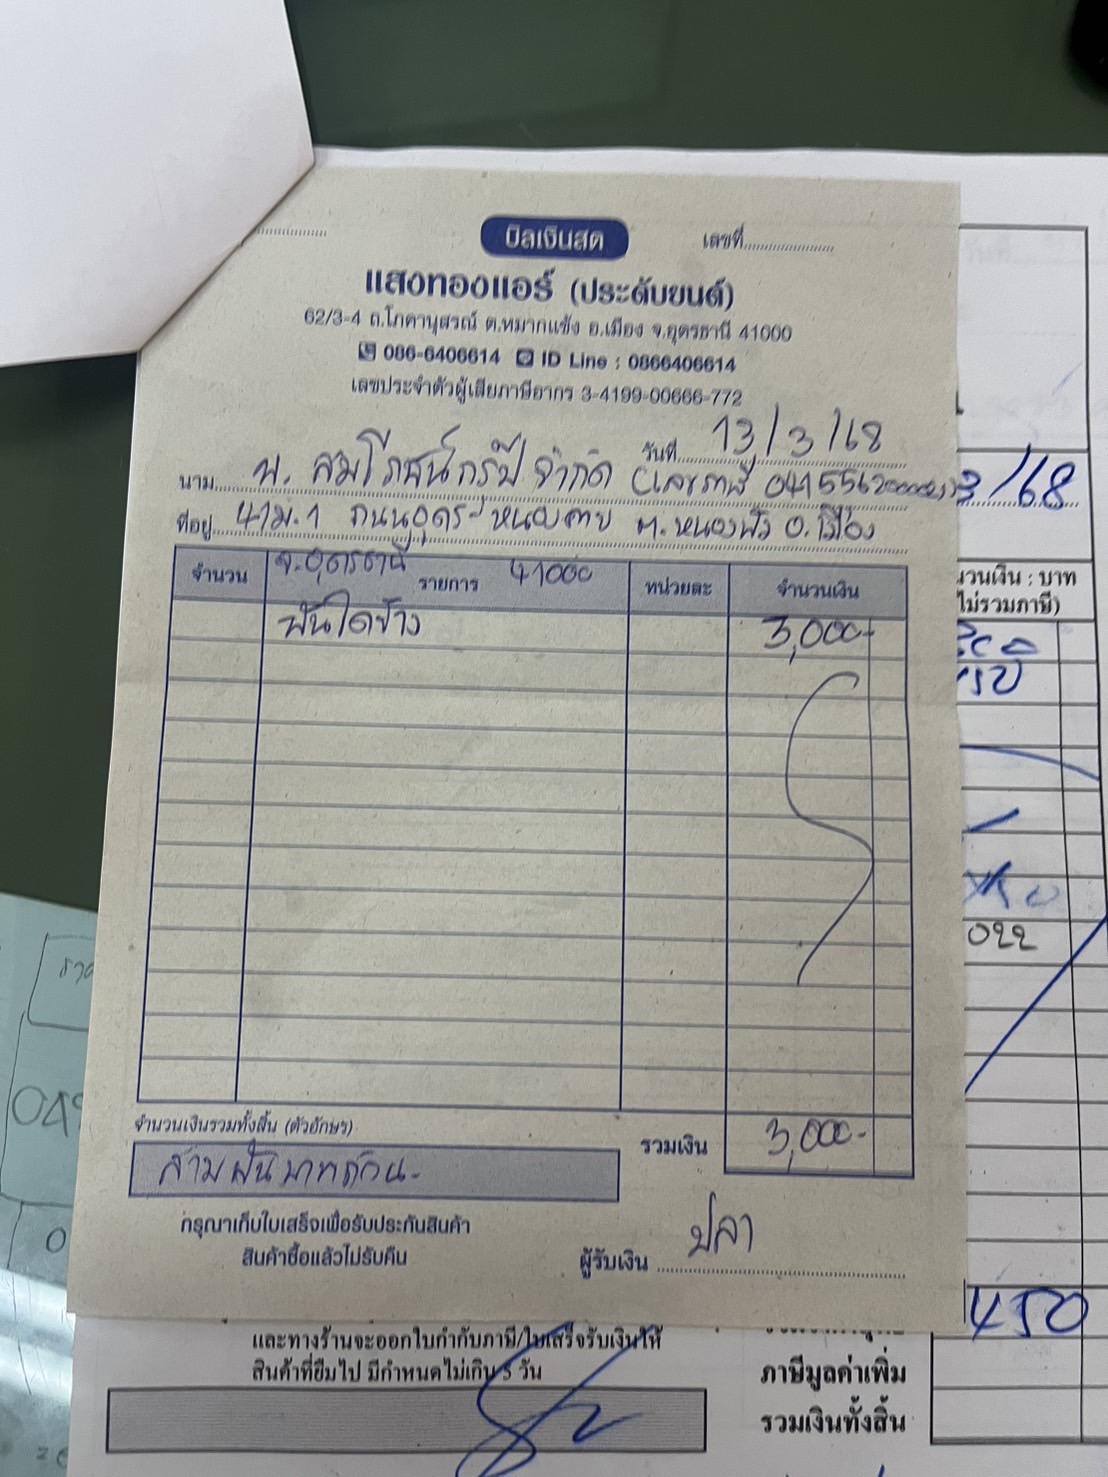 บิลเงินสด
เลขที่
แสงทองแอร์ (ประดับยนต์)
62/3-4 ถ.โภคานุสรณ์ ต.หมากแข้ง อ.เมือง จ.อุดรธานี 41000
086-6406614 ID Line : 0866406614
เลขประจำตัวผู้เสียภาษีอากร 3-4199-00666-772
วันที่ 13/3/68
นาม บ. สมโภชน์กรุ๊ป จำกัด
ที่อยู่ 41 ม.1 ถนนอุดร-หนองคาย ต.หนองบัว อ.เมือง
จ.อุดรธานี 41000
จำนวน รายการ หน่วยละ จำนวนเงิน
บันไดข้าง 3,000-
จำนวนเงินรวมทั้งสิ้น (ตัวอักษร)
รวมเงิน 3,000.-
สามพันบาทถ้วน-
กรุณาเก็บใบเสร็จเพื่อรับประกันสินค้า
สินค้าซื้อแล้วไม่รับคืน
ผู้รับเงิน ปลา
/68
จำนวนเงิน : บาท
ไม่รวมภาษี)
022
450
และทางร้านจะออกใบกำกับภาษี/ใบเสร็จรับเงินให้
สินค้าที่ยืมไป มีกำหนดไม่เกิน 5 วัน
ภาษีมูลค่าเพิ่ม
รวมเงินทั้งสิ้น